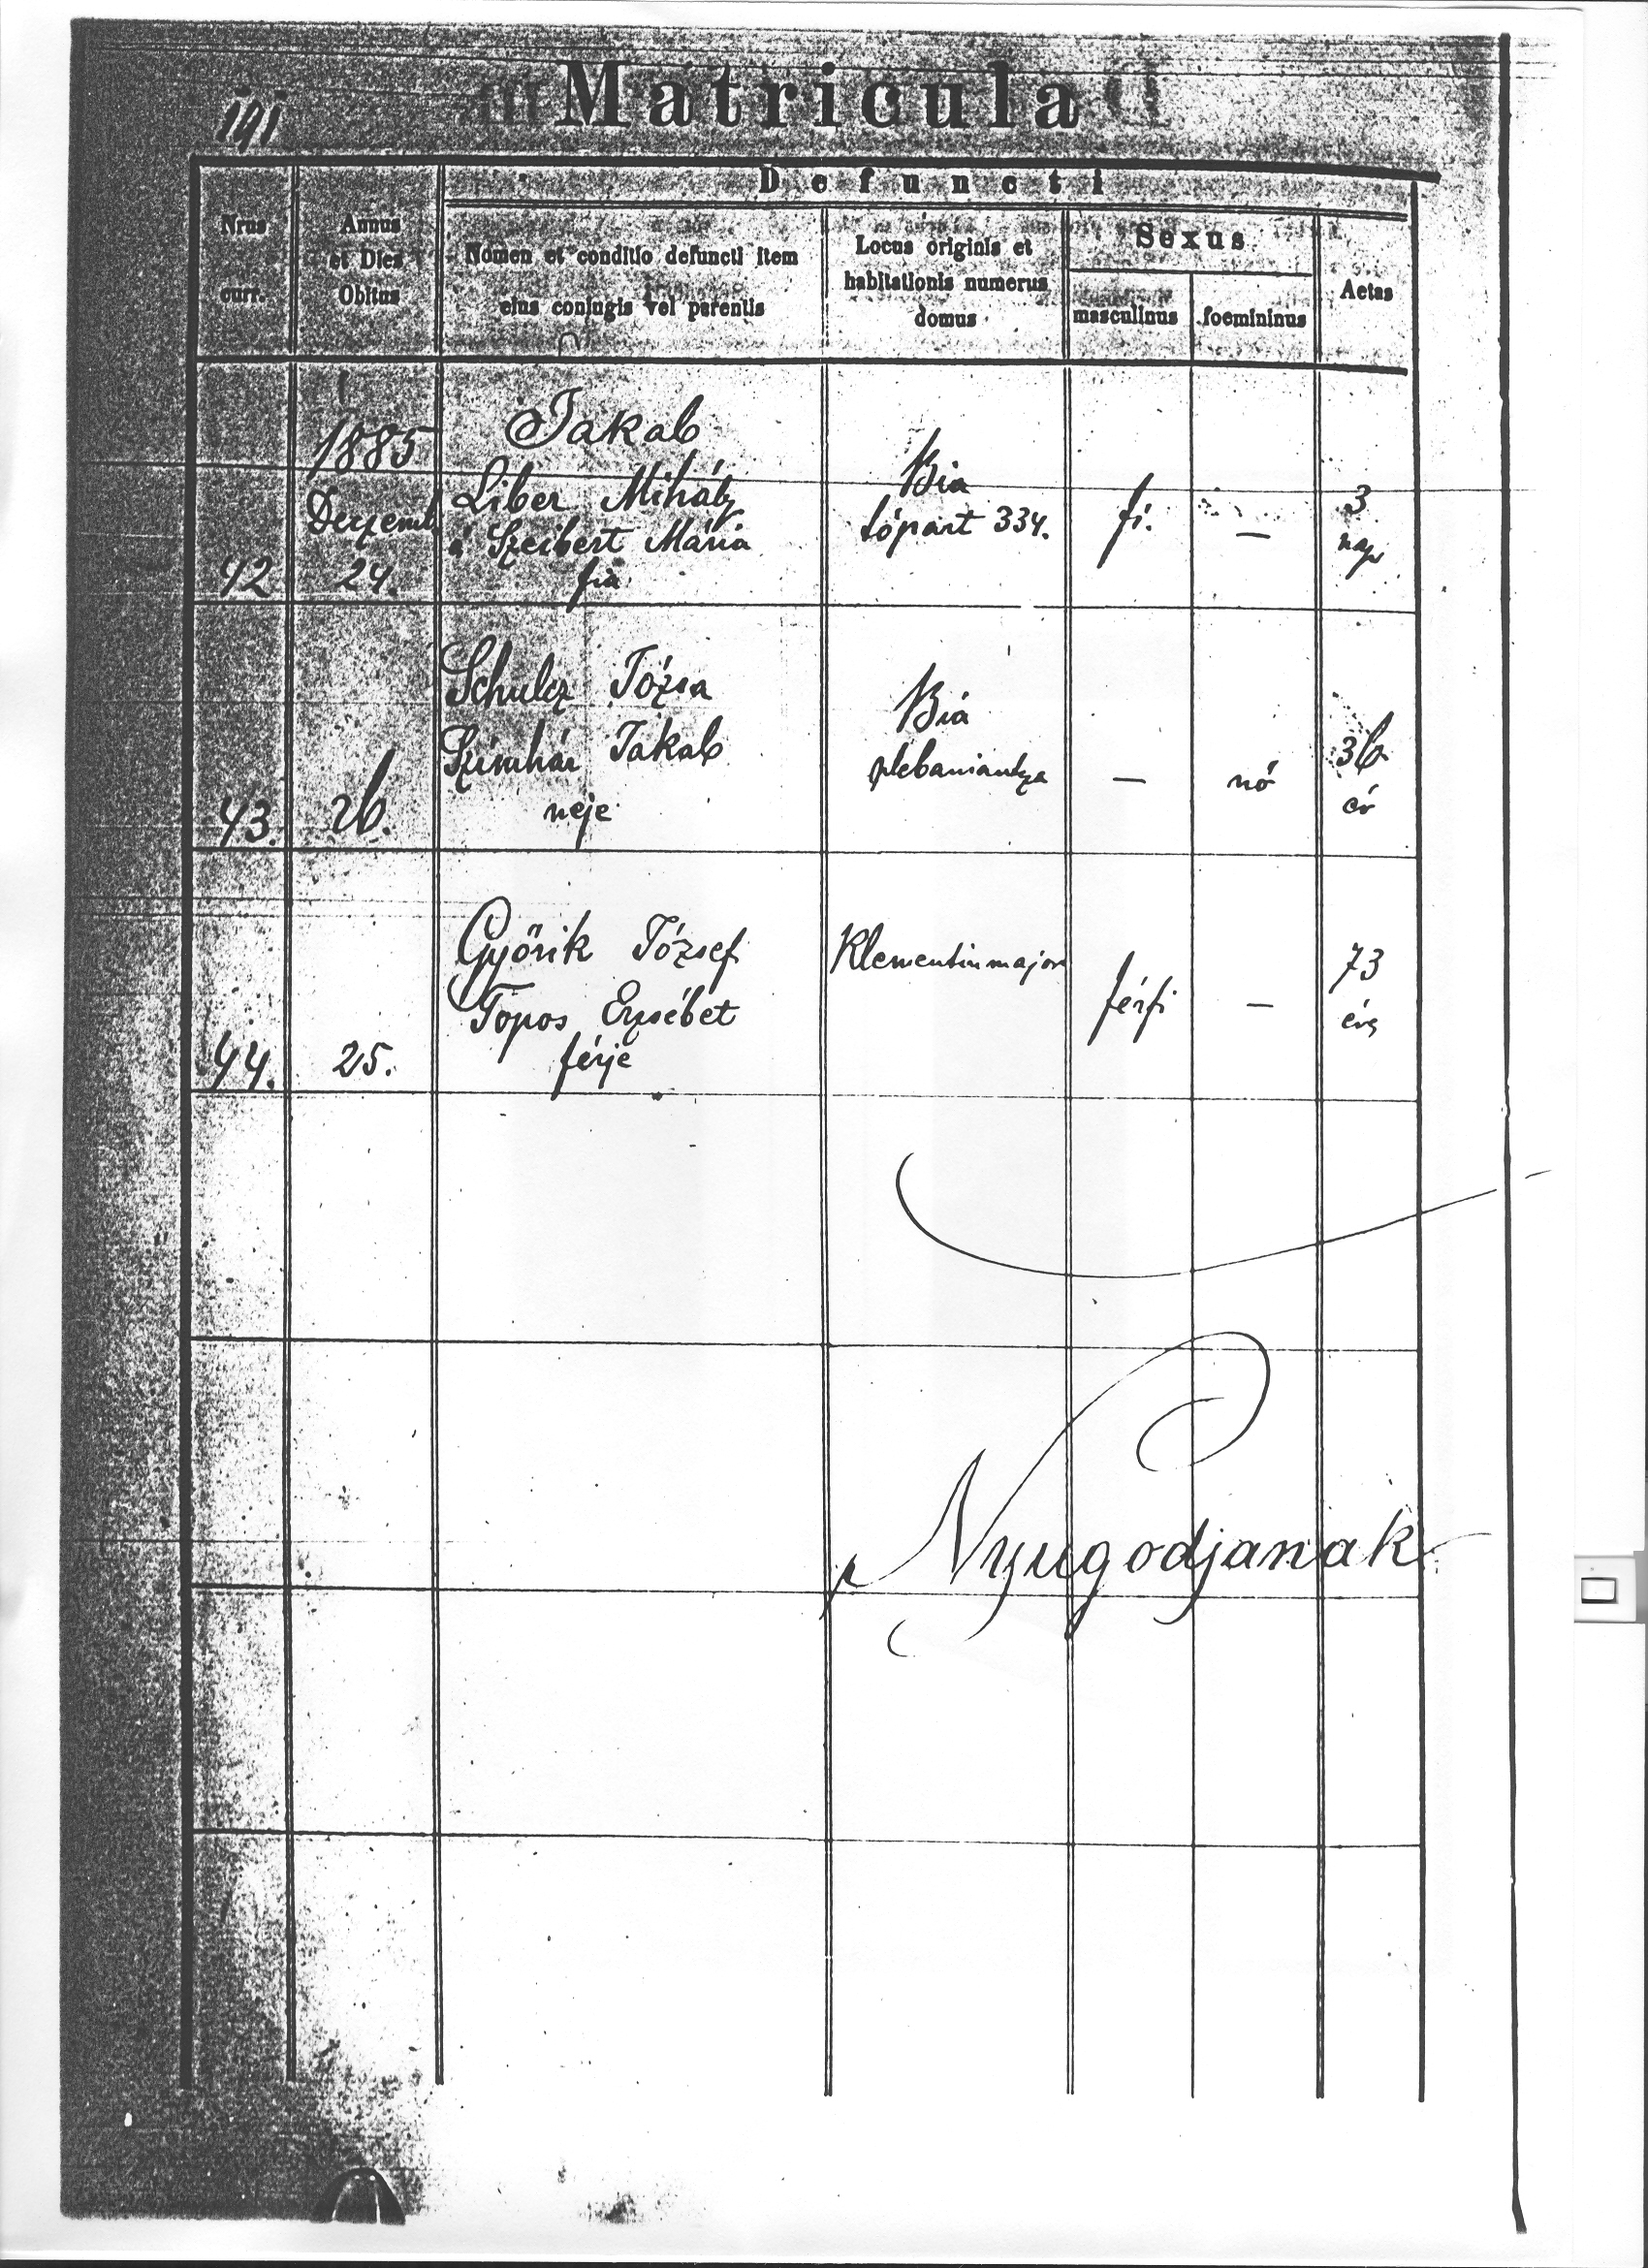 191
Matricula
Defuncti
Nrus
curr.
Annus
et Dies
Obitus
Nomen et conditio defuncti item
eius conjugis vel parentis
Locus originis et
habitationis numerus
domus
Sexus
masculinus
foemininus
Aetas
42
1885
Deczemb.
24.
Jakab
Liber Mihály
á Szeibert Mária
fia
Bia
tópart 334.
fi.
—
3
nap
43.
26.
Schulcz Józsa
Jakab
neje
Biá
—
nő
36
év
44.
25.
Győrik József
Topos Erzsébet
férje
Klementinmajor
férfi
—
73
éves
Nyugodjanak